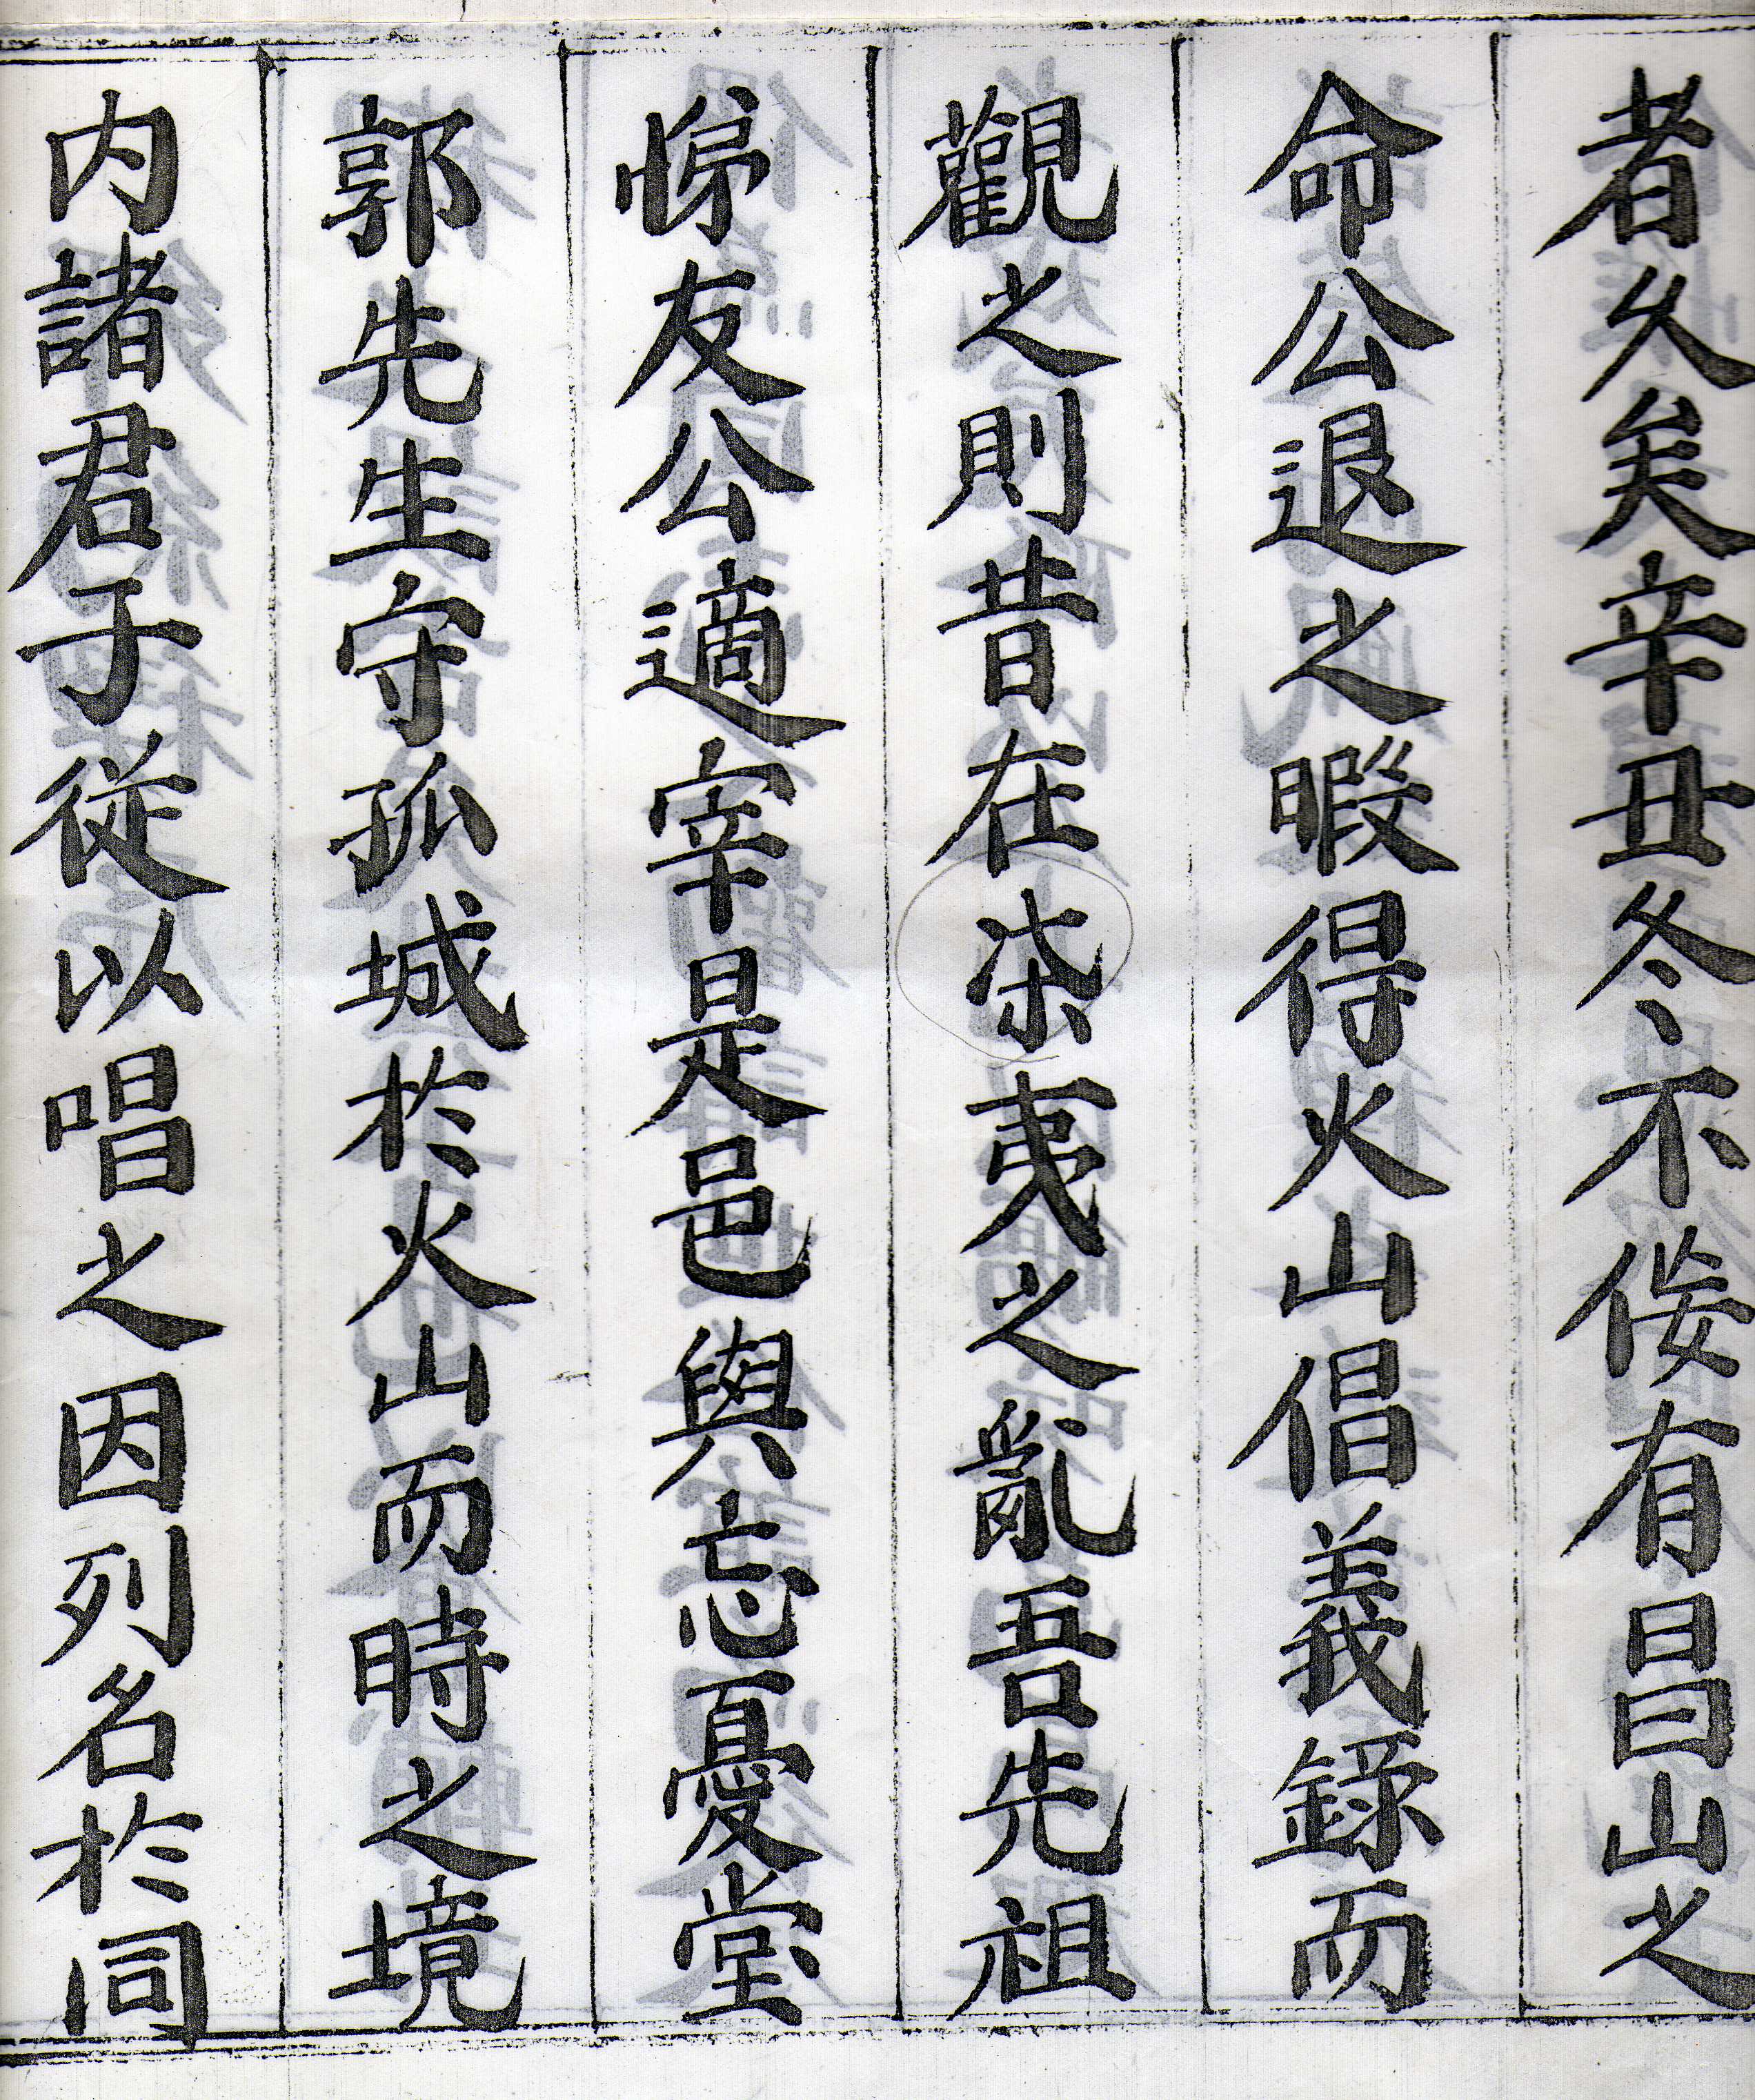 者久矣辛丑冬不佞有昌山之
命公退之暇得火山倡義錄而
觀之則昔在柒夷之亂吾先祖
悌友公適宰是邑與忘憂堂
郭先生守孤城於火山而時之境
内諸君子従以唱之因列名於同